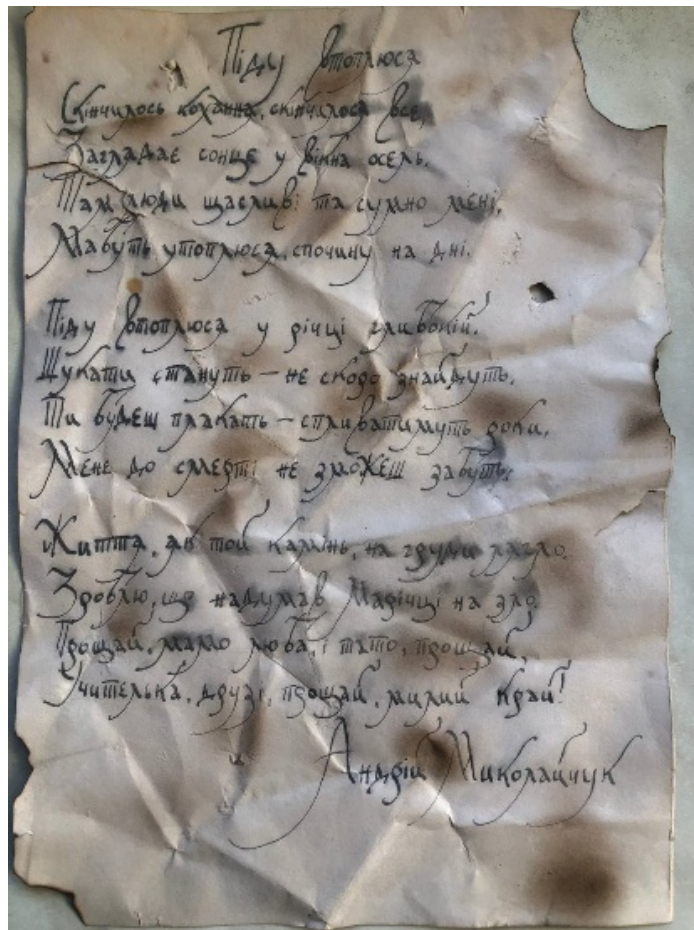 Піду втоплюся
Скінчилось кохання, скінчилося все,
Заглядає сонце у вікна осель.
Там люди щасливі та сумно мені,
Мабуть утоплюся, спочину на дні.
Піду втоплюся у річці глибокій.
Шукати стануть – не скоро знайдуть.
Ти будеш плакать – спливатимуть роки,
Мене до смерті не зможеш забуть.
Життя, як той камінь, на груди лягло.
Зроблю, що надумав Марічці на зло.
Прощай, мамо люба, і тато, прощай,
Учителька, друзі, прощай, милий край!
Андрій Миколайчук